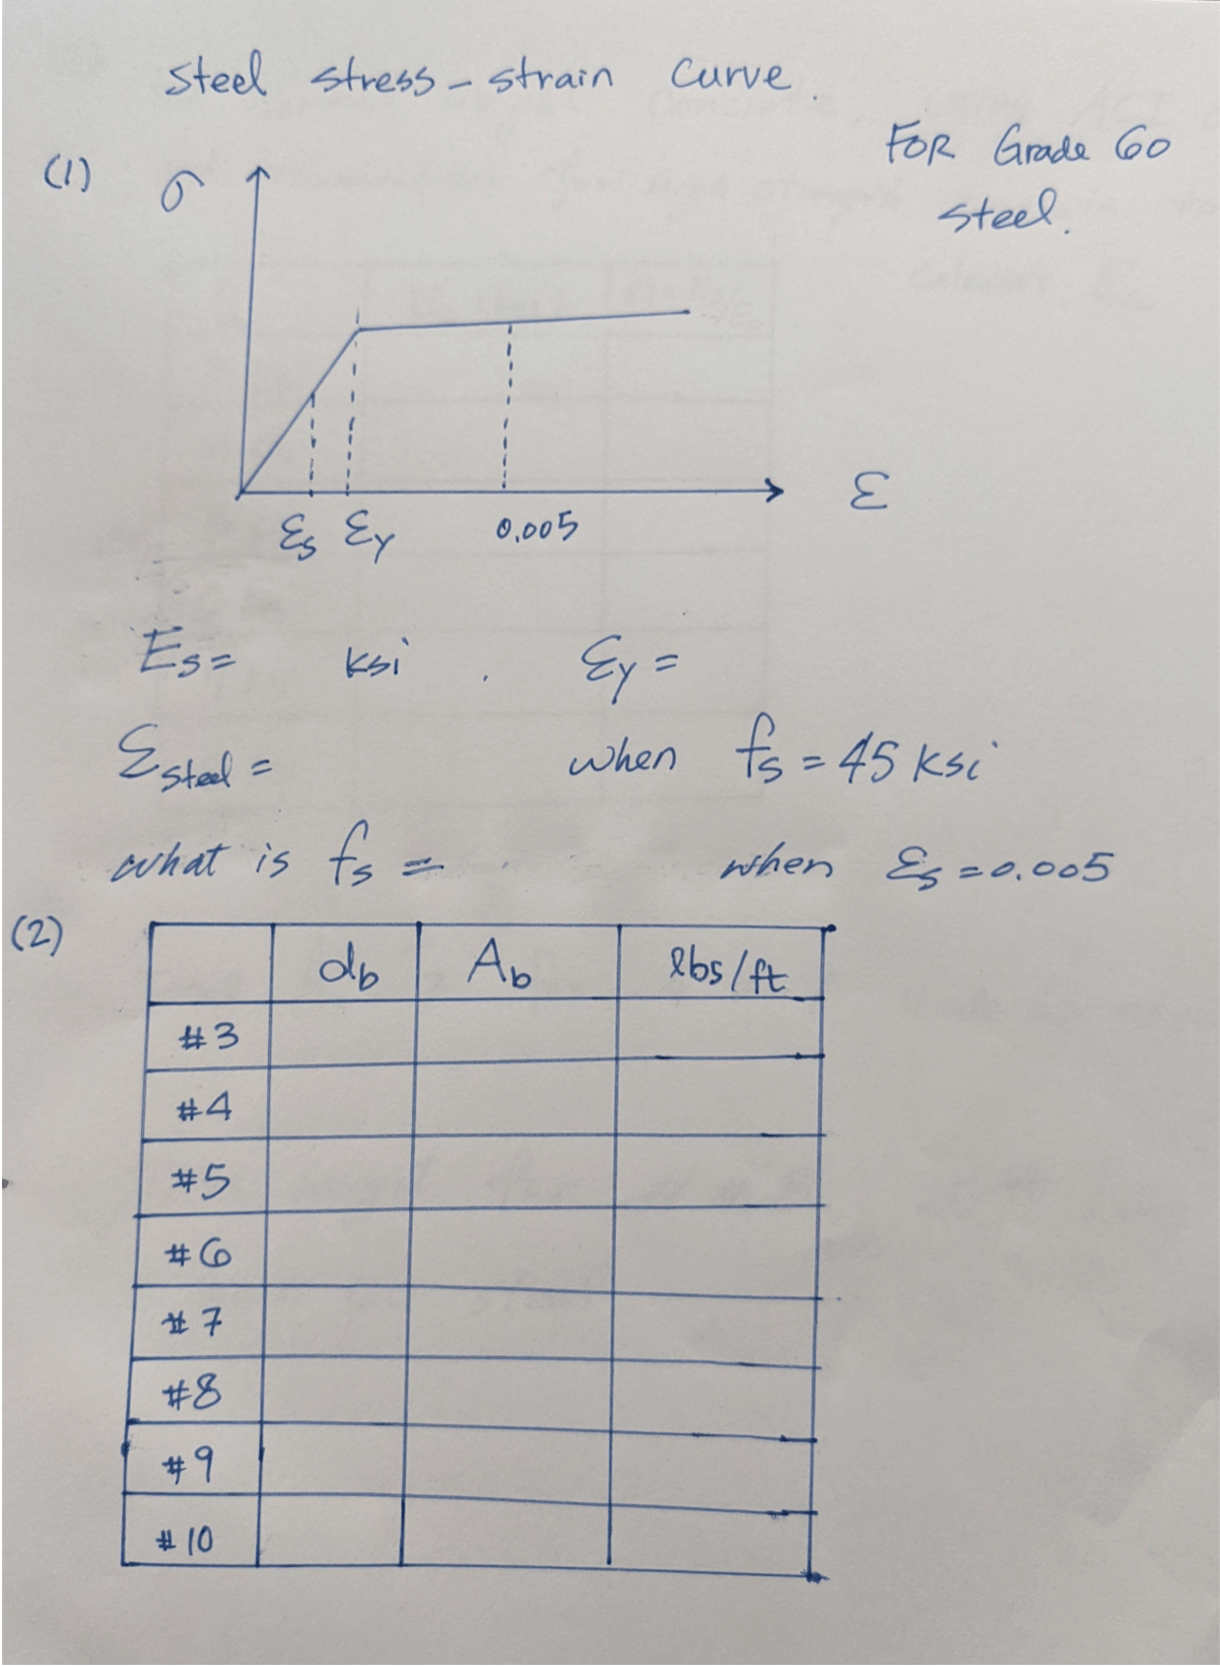 Steel stress-strain curve.
FOR Grade 60
steel.
(1)
σ
ε
εs εy 0.005
Es= ksi . εy =
εsteel = when fs = 45 ksi
what is fs = when εs = 0.005
(2)
db Ab lbs/ft
#3
#4
#5
#6
#7
#8
#9
#10